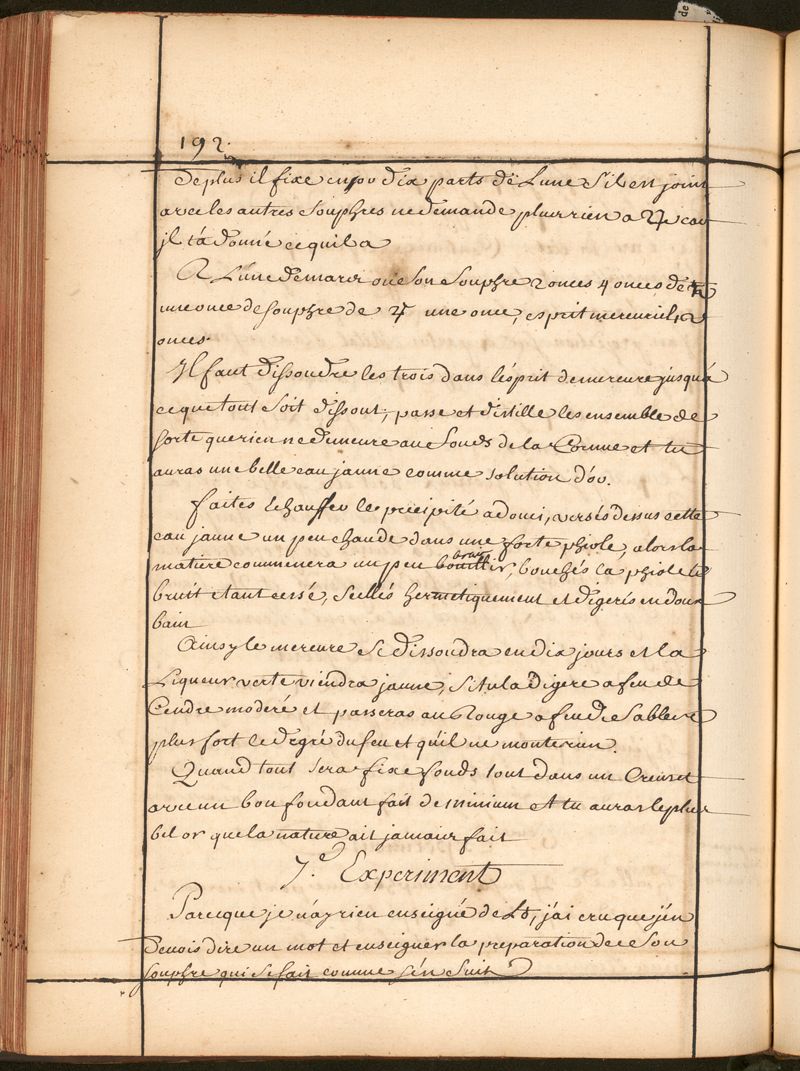 192.
De plus il fixe en jov dix parts de Lune S'il est joint
avec les autres Souphres ne demande plus rien a ♃ car
jl t'a donné ce quil a
A Lune de mars ou e Son Souphre 2 onces 4 onces de ♄
une once de souphre de ♃ une once, esprit mercuriel 12
onces.
Il faut dissoudre les trois dans l'esprit de mercure jusqu'a
ce que tout soit dissout, passe et distille les ensemble de
sorte que rien ne demeure au fonds de la Cornue et tu
auras une belle eau jaune comme solution d'or.
faites échauffer le precipité adouci, versés dessus cette
eau jaune un peu chaude dans une forte phiole, alors la
matiere commencera un peu bouillir, bouchés la phiole le
bruit etant cessé, Scellés hermetiquement et digerés en doux
bain
Ainsy le mercure Se dissoudra en dix jours et la
Liqueur verte viendra jaune, Si tu la digere a feu de
Cendre moderé et passeras au Rouge a feu de Sable
plus fort le degré du feu et qu'il ne monte rien.
Quand tout sera fixe fonds tout dans un Creuset
avec un bon fondant fait de minium et tu auras le plus
bel or que la nature ait jamais fait
7.e Experiment
Parceque je n'ay rien enseigné de, j'ai cru que j'en
devois dire un mot et enseigner la preparation de ce Son
souphre qui se fait comme s'en Suit